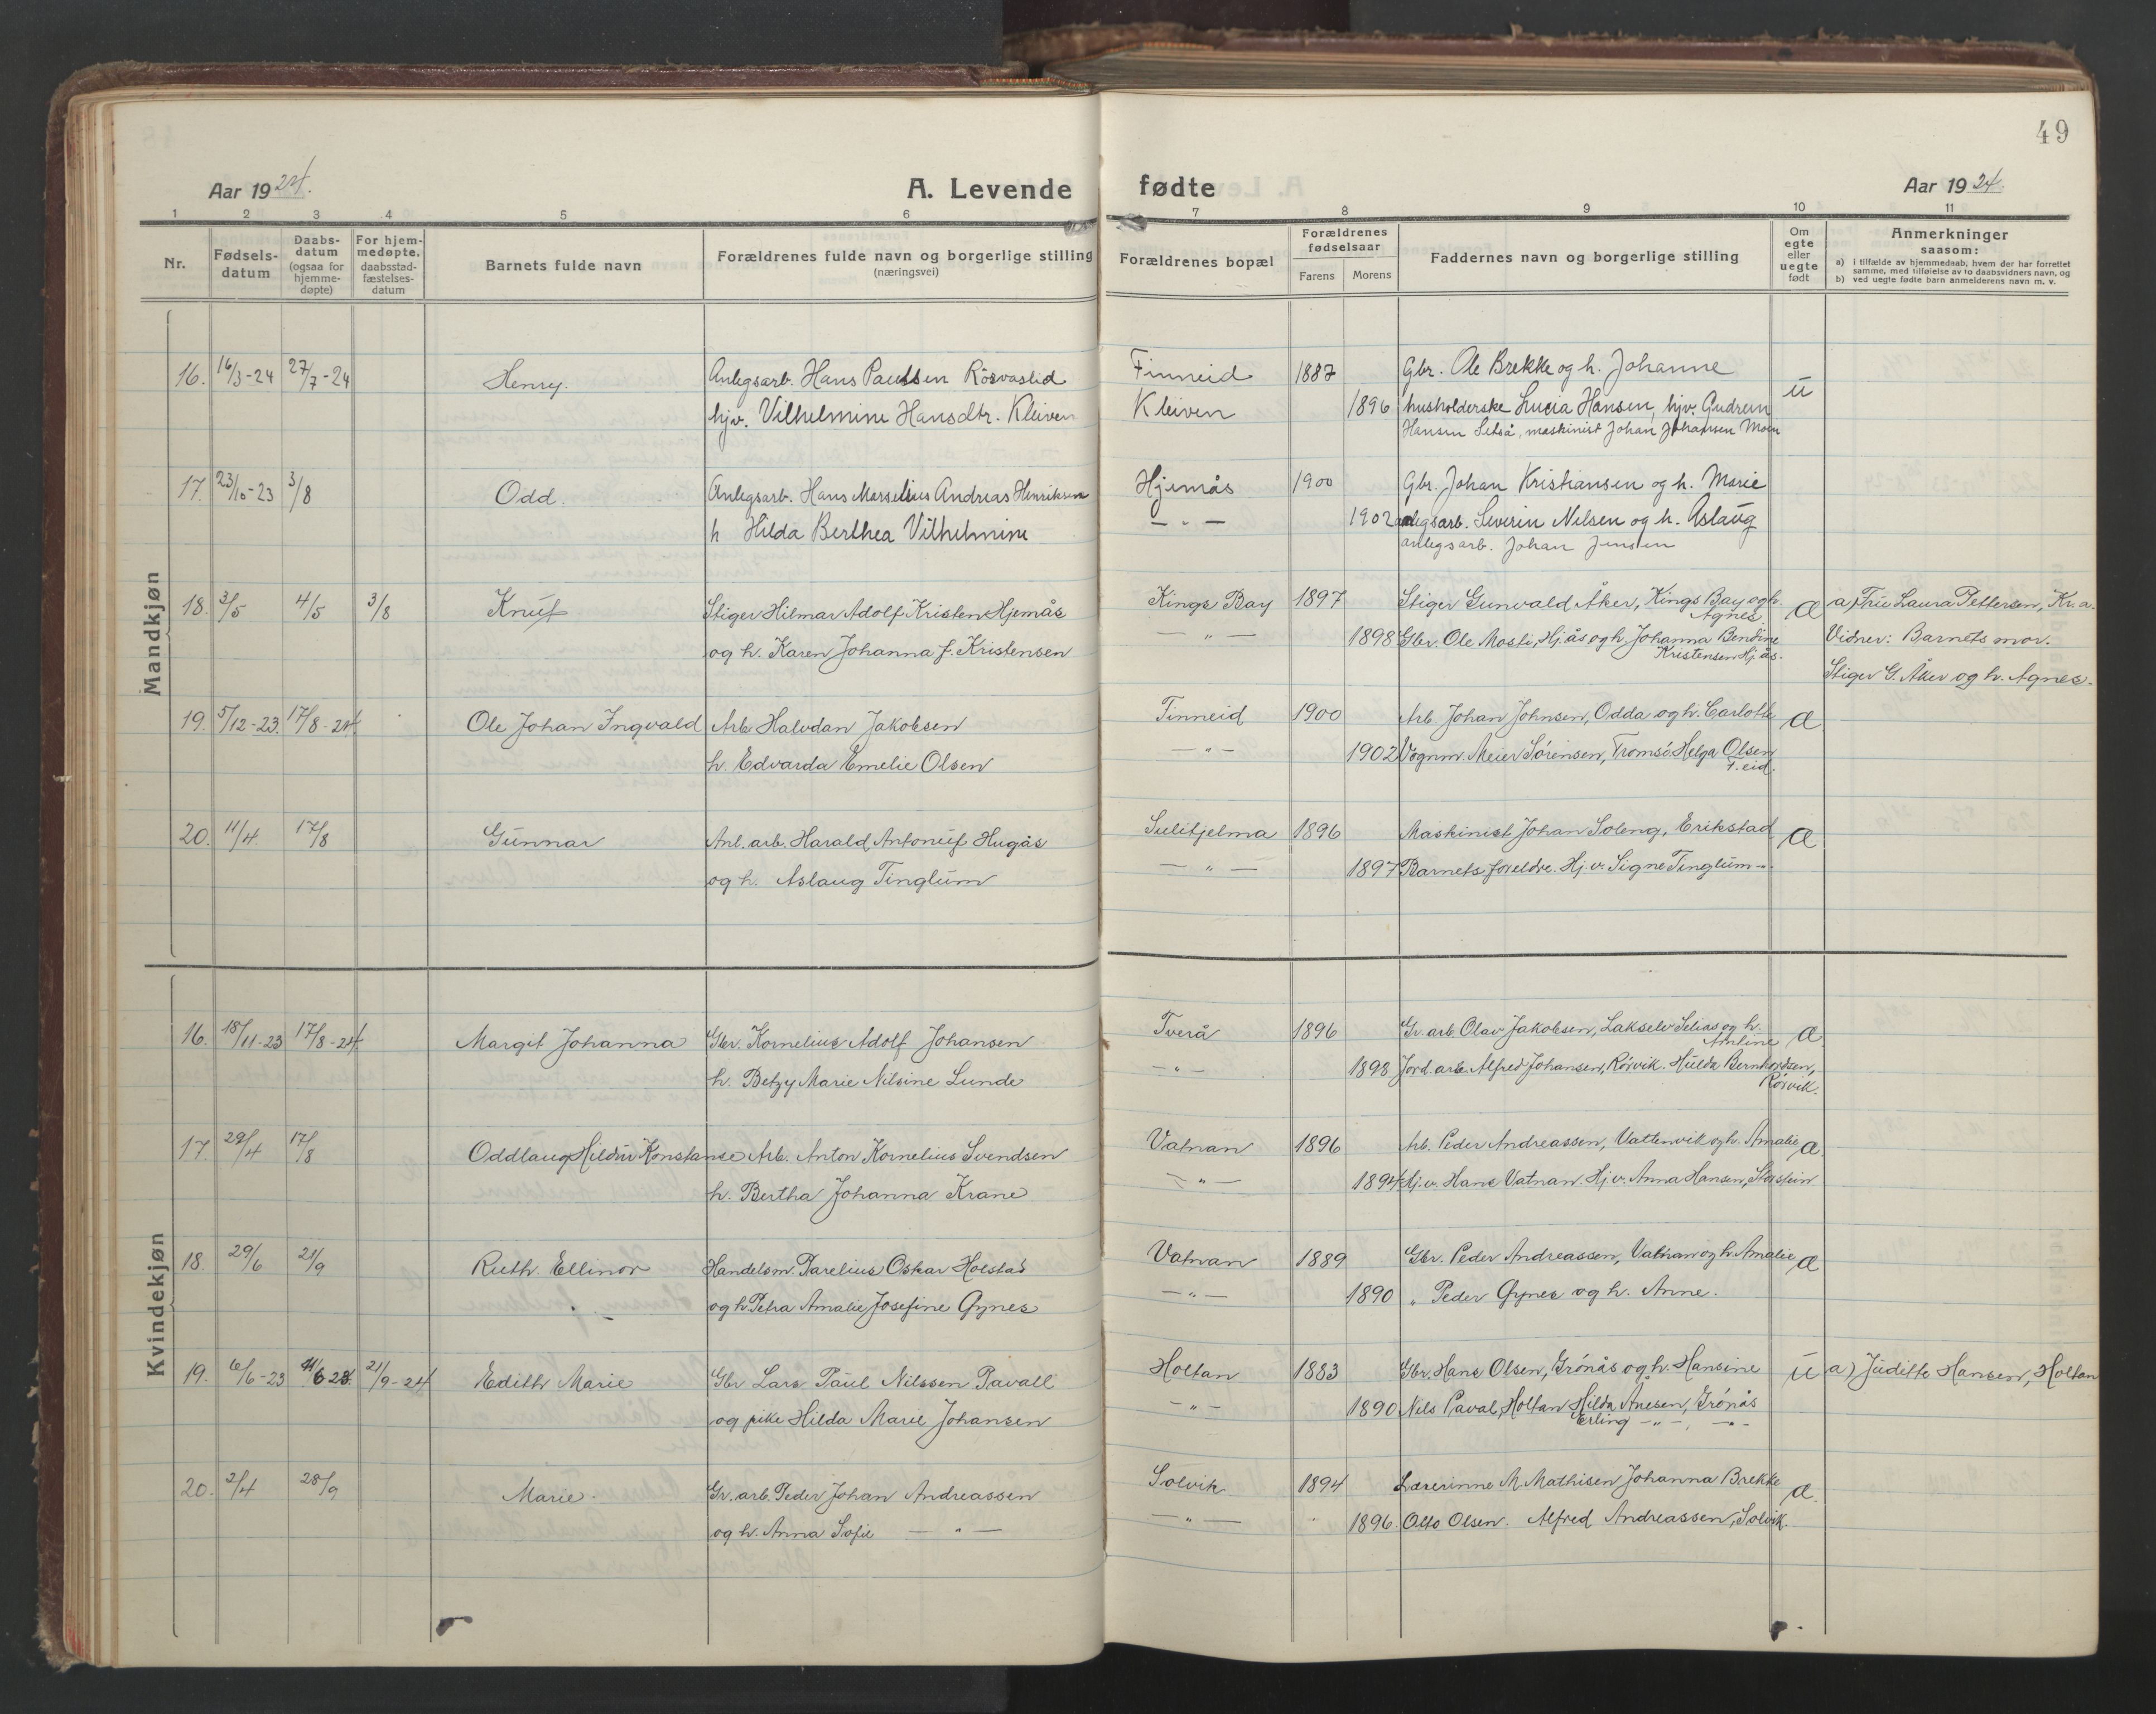 49
Aar 1924.
A. Levende fødte
Aar 1924.
1 2 3 4 5 6 7 8 9 10 11
Nr.
Fødsels-
datum
Daabs-
datum
(ogsaa for
hjemme-
døpte)
For hjem-
medøpte,
daabsstad-
fæstelses-
datum
Barnets fulde navn
Forældrenes fulde navn og borgerlige stilling
(næringsvei)
Forældrenes bopæl
Forældrenes
fødselsaar
Farens Morens
Faddernes navn og borgerlige stilling
Om
egte
eller
uegte
født
Anmerkninger
saasom:
a) i tilfælde av hjemmedaab, hvem der har forrettet
samme, med tilføielse av to daabsvidners navn, og
b) ved uegte fødte barn anmelderens navn m. v.
Mandkjøn
16. 16/3-24 27/7-24 Henry. Anlegsarb. Hans Paulsen Rösvaslid Finneid 1887 Gbr. Ole Brekke og h. Johanne u
hjv. Vilhelmine Hansdtr. Kleiven Kleiven 1896 husholderske Lucia Hansen, hjv. Gudrun
Hansen Setså, maskinist Johan Johansen Moen
17. 23/10-23 3/8 Odd. Anlegsarb. Hans Marselius Andreas Henriksen Hjemås 1900 Gbr. Johan Kristiansen og h. Marie
h Hilda Berthea Vilhelmine — " — 1902 anlegsarb. Severin Nilsen og h. Aslaug
anlegsarb. Johan Jensen
18. 3/5 4/5 3/8 Knut Stiger Hilmar Adolf Kristen Hjemås Kings Bay 1897 Stiger Gunvald Åker, Kings Bay og h. Agnes. æ a) Fru Laura Pettersen, Kr.a.
og h. Karen Johanna f. Kristensen — " — 1898 Gbr. Ole Mosti, Hj.ås og h. Johanna Bendine Vidner: Barnets mor.
Kristensen Hj.ås. Stiger G. Åker og h. Agnes.
19. 5/12-23. 17/8-24. Ole Johan Ingvald Arb. Halvdan Jakobsen Finneid 1900 Arb. Johan Johnsen, Odda og h. Carlotte æ
h. Edvarda Emelie Olsen — " — 1902 Vognm. Meier Sørensen, Tromsö Helga Olsen
F.eid.
20. 11/4. 17/8 Gunnar Anl. arb. Harald Antonuf Hugås Sulitjelma 1896 Maskinist Johan Soleng, Erikstad æ
og h. Aslaug Tinglum — " — 1897 Barnets foreldre. Hj.v. Signe Tinglum -"-
Kvindekjøn
16. 18/11-23 17/8-24. Margit Johanna Gbr. Kornelius Adolf Johansen Tverå 1896 Gr. arb. Olav Jakobsen, Lakselv Selias og h. æ
h. Betzy Marie Nilsine Lunde — " — 1898 Jord. arb. Alfred Johansen, Rörvik. Hulda Bernhardsen,
Rörvik.
17. 29/4 17/8 Oddlaug Hildur Konstanse Arb. Anton Kornelius Svendsen Vatnan 1896 Arb. Peder Andreassen, Vattenvik og h. Amalie æ
h. Bertha Johanna Krane — " — 1894 Hj.v. Hans Vatnan. Hj.v. Anna Hansen, Storstein
18. 29/6 21/9 Ruth Ellinor Handelsm. Parelius Oskar Holstad Vatnan 1889 Gbr. Peder Andreassen, Vatnan og h. Amalie æ
og h. Petra Amalie Josefine Gynes — " — 1890 " Peder Gynes og h. Anne.
19. 6/6-23 11/6 23. 21/9-24 Edith Marie Gbr Lars Paul Nilssen Pavall Holtan 1883 Gbr. Hans Olsen, Grönås og h. Hansine u a) Juditte Hansen, Holtan
og pike Hilda Marie Johansen — " — 1890 Nils Paval, Holtan Hilda Ånesen, Grönås
Erling -"- -"-
20. 2/4 28/9 Marie. Gr. arb. Peder Johan Andreassen Solvik 1894 Lærerinne M. Mathisen Johanna Brekke æ
og h. Anna Sofie — " — — " — 1896. Otto Olsen. Alfred Andreassen, Solvik.